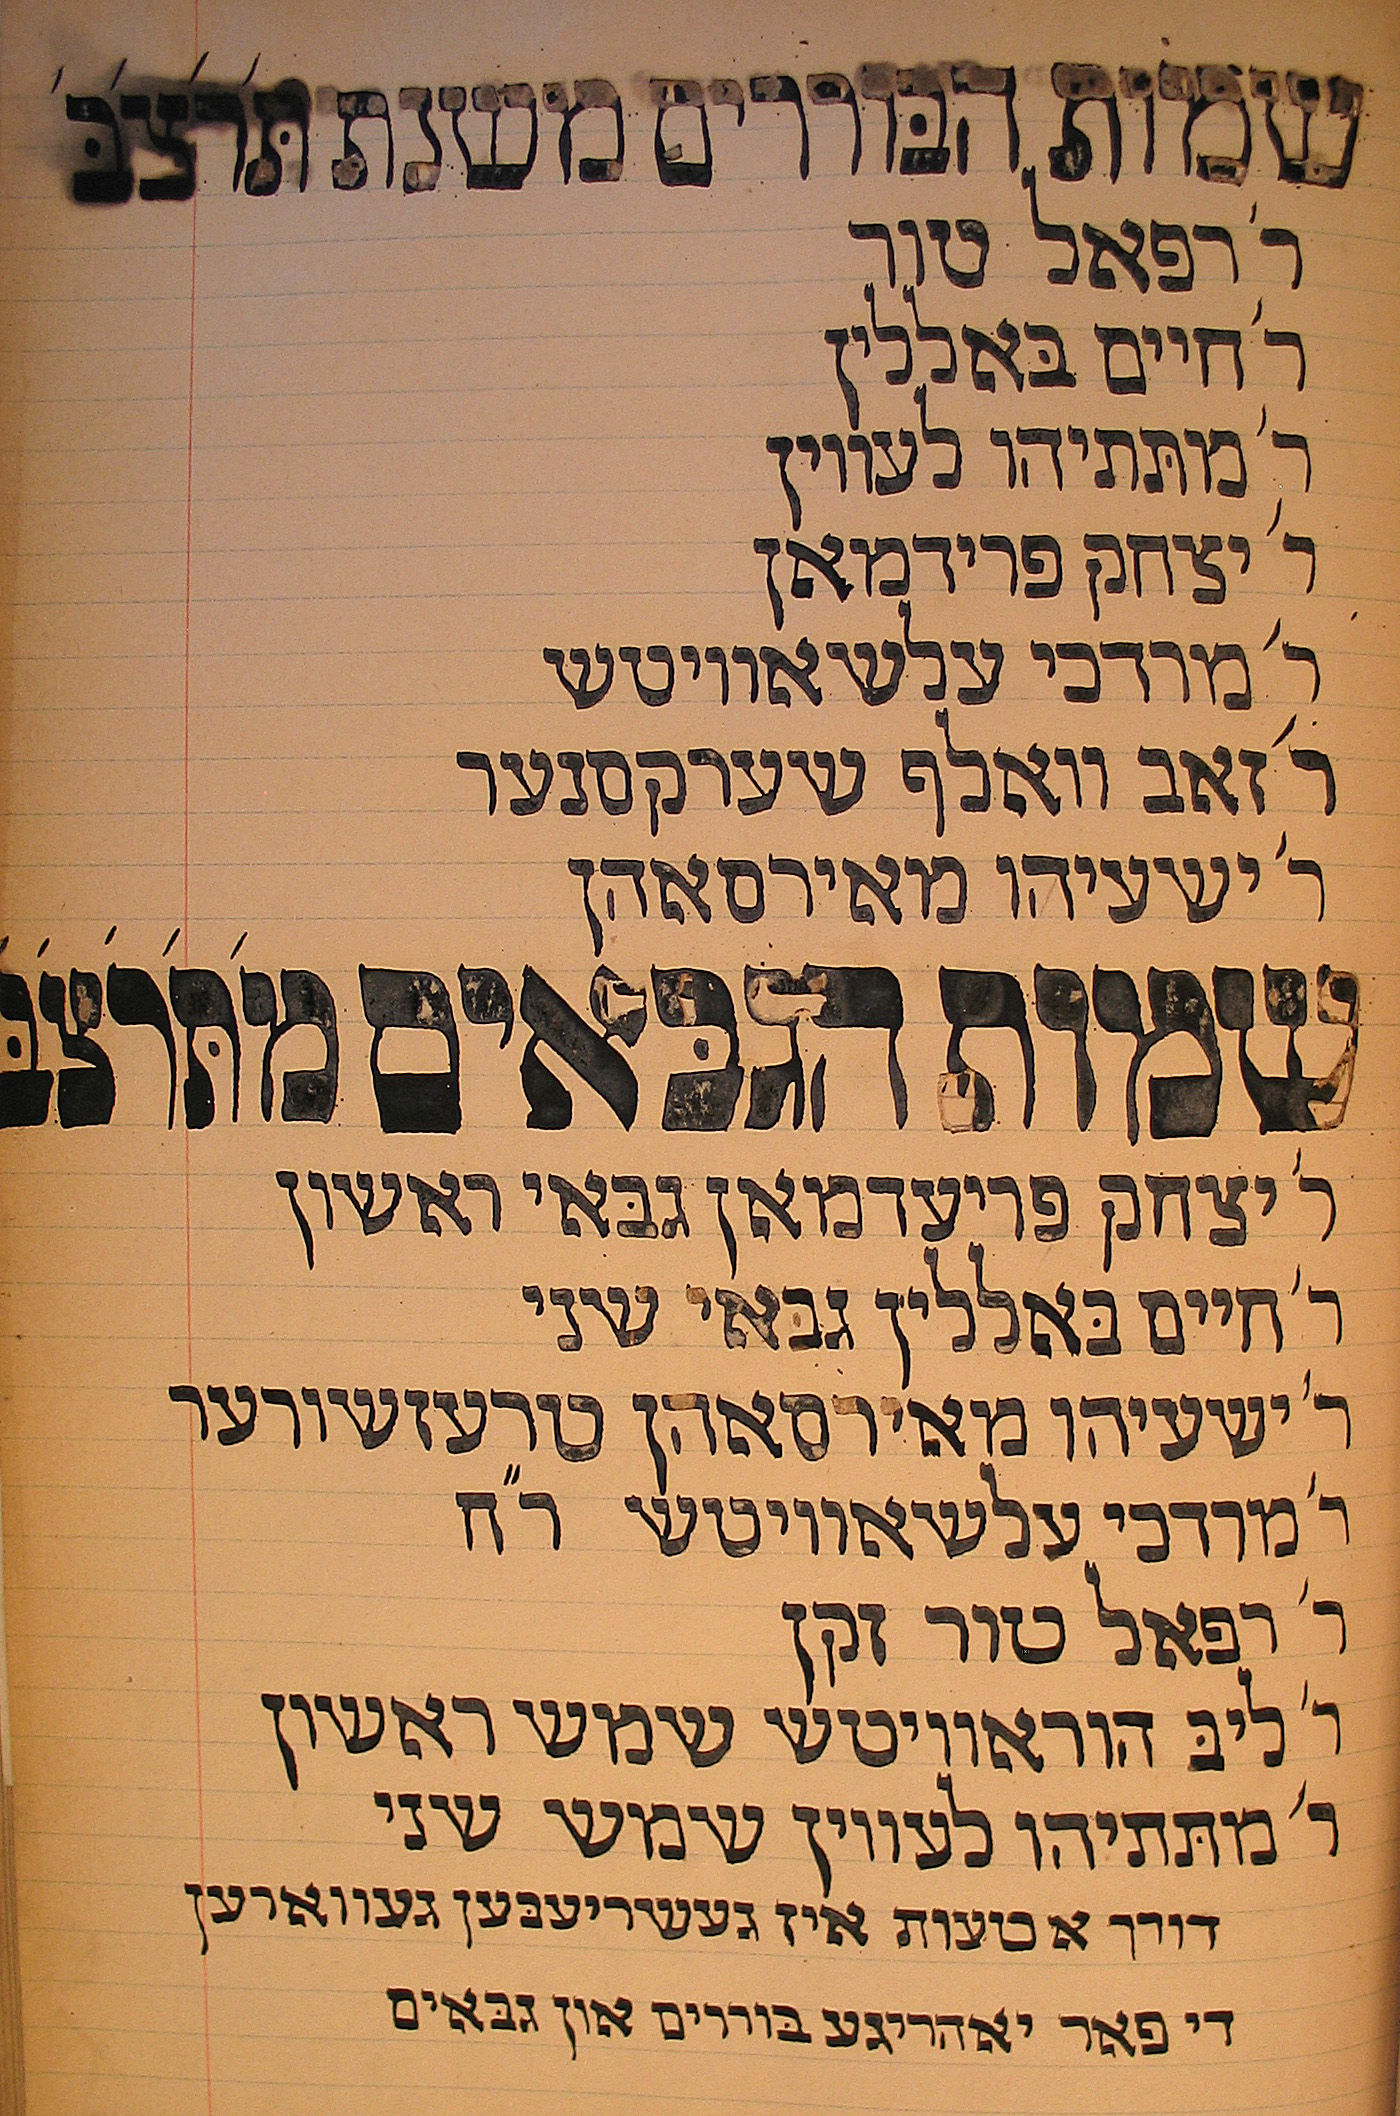 שמות הבּוררים משנת תּ'ר'צ'בּ'
ר' רפאל טור
ר' חיים בּאללין
ר' מתּתיהו לעווין
ר' יצחק פרידמאן
ר' מרדכי עלשאוויטש
ר' זאב וואלף שערקסנער
ר' ישעיהו מאירסאהן
שמות הגבּאים מ'תּ'ר'צ'בּ'
ר' יצחק פריעדמאן גבּאי ראשון
ר' חיים בּאללין גבּאי שני
ר' ישעיהו מאירסאהן טרעזשורער
ר' מרדכי עלשאוויטש ר"ח
ר' רפאל טור זקן
ר' ליבּ הוראוויטש שמש ראשון
ר' מתּתיהו לעווין שמש שני
דורך א טעות איז געשריעבּען געווארען
די פאר יאהריגע בּוררים און גבּאים